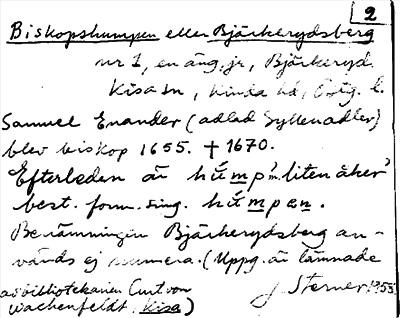 2
Biskopshumpen eller Bjärkerydsberg
nr 1, en äng, jr, Bjärkeryd.
Kisa sn, Kinda hd, Östg. l.
Samuel Enander (adlad Gyllenadler)
blev biskop 1655. † 1670.
Efterleden är húmp m. 'liten åker'
best. form. sing. húmpen.
Benämningen Bjärkerydsberg an-
vänds ej numera. (Uppg. är lämnade
av bibliotekarien Curt von
Wachenfeldt, Kisa) J. Sterner 1953